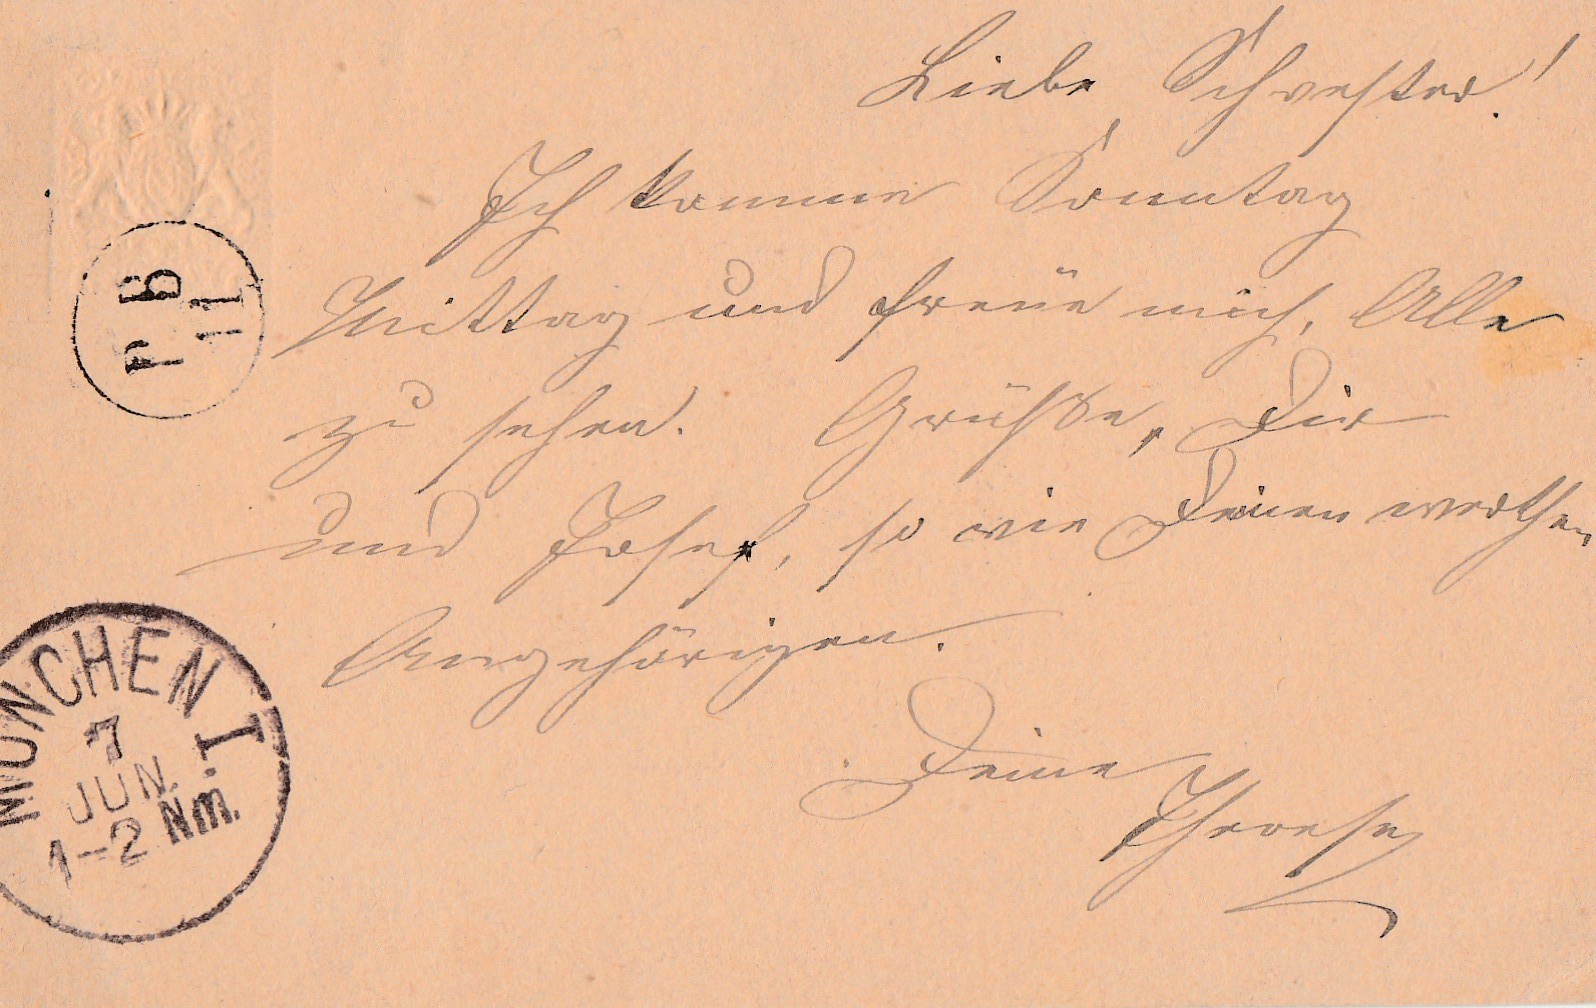 Liebe Schwester!
Ich komme Sonntag
Mittag und freue mich, Alle
zu sehen. Grüße, Dir
und Josef, so wie Deinen werthen
Angehörigen.
Deine
Therese
P B
11
MÜNCHEN I.
7
JUN.
1-2 Nm.